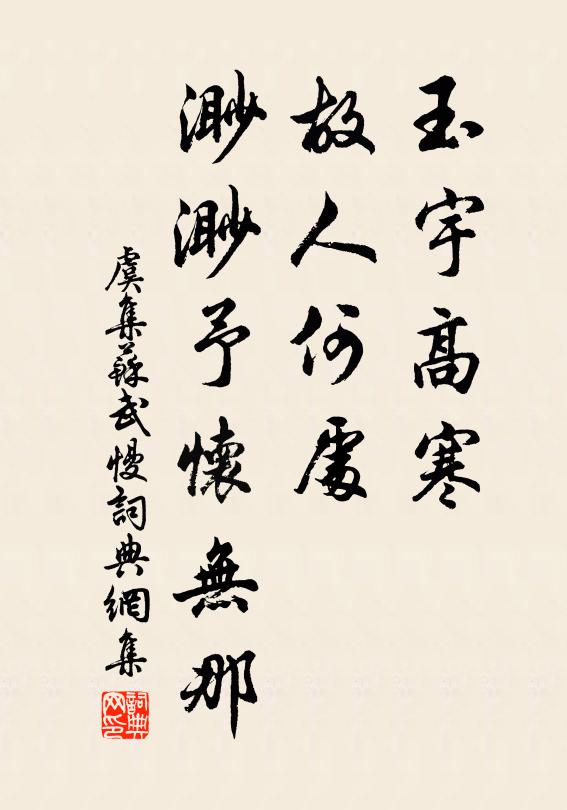 玉宇高寒
故人何處
渺渺予懷無那
虞集蘇武慢詞典網集
詞典网印